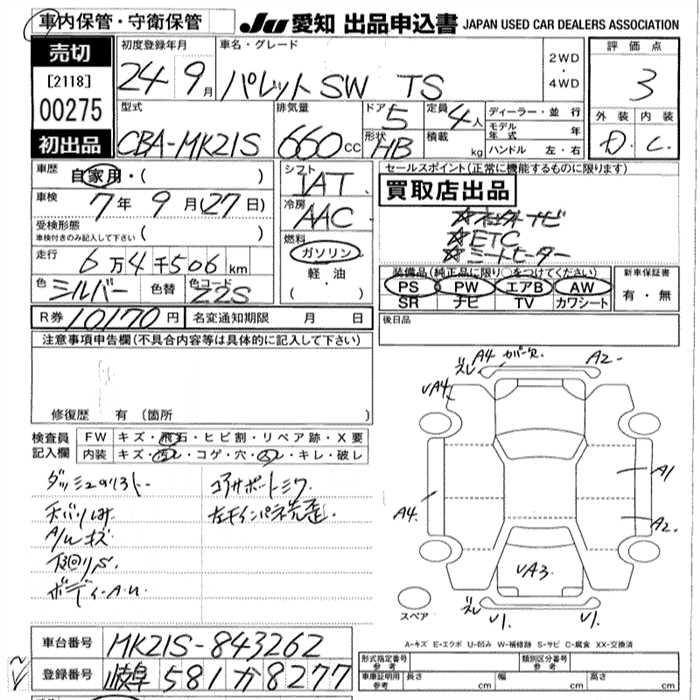 車内保管・守衛保管
JU 愛知 出品申込書 JAPAN USED CAR DEALERS ASSOCIATION
売切
[2118]
00275
初出品
初度登録年月
24 9月
車名・グレード
パレットSW TS
2WD・4WD
評価点
3
外装 内装
D. C.
型式
CBA-MK21S
排気量
660 CC
ドア 5
形状 HB
定員 4人
積載 kg
ディーラー・並行
モデル年式 年
ハンドル 左・右
車歴
自家用・( )
車検
7年 9月(27日)
受検形態
車検付きのみ記入して下さい ( )
走行
6万4千506km
色 シルバー 色替 色コード Z2S
シフト
IAT
冷房
AAC
燃料
ガソリン
軽油
( ・ )
セールスポイント(正常に機能するものに限ります)
買取店出品
☆ETC
☆シートヒーター
装備品(純正品に限り○をつけてください)
PS PW エアB AW
SR ナビ TV カワシート
新車保証書
有・無
R券 10170円 名変通知期限 月 日
後日品
注意事項申告欄(不具合内容等は具体的に記入して下さい)
修復歴 有(箇所 )
検査員記入欄
FW キズ・飛石・ヒビ割・リペア跡・X要
内装 キズ・汚レ・コゲ・穴・スレ・キレ・破レ
A/Wキズ
下回りS
コアサポートミワ
ズレ A4 カバー欠 A2
UA4
A1
A4
A2
UA3
スペア
ズレ U1. U1.
A-キズ E-エクボ U-凹み W-補修跡 S-サビ C-腐食 XX-交換済
車台番号 MK21S-843262
登録番号 岐阜 581 か 8277
形式指定番号 参考
類別区分番号 参考
車庫証明用参考 長さ cm 幅 cm 高さ cm